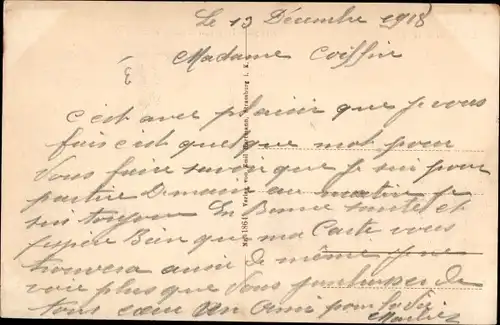 Le 13 Décembre 1918
Madame Coiffin
C'est avec plaisir que Je vous
fais c'est quelque mot pour
Vous faire savoir que Je sui pour
partire Demain au matin je
sui toujour En Bonne santé et
J'espère Bien que ma Carte vous
trouvera aussi De même Je ne
voie plus que Vous De
tous cœur un ami pour la vie
Maurice
No. 1864 Verlag von Emil Hartmann, Strassburg i. E.